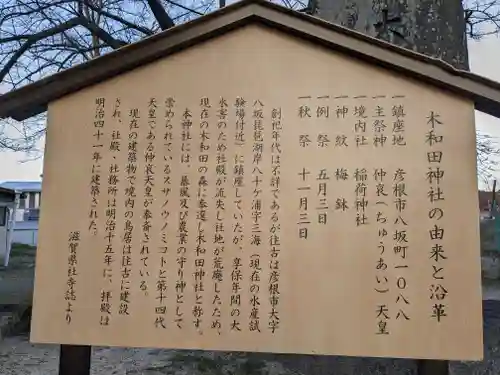 木和田神社の由来と沿革
一鎮座地　彦根市八坂町一〇八八
一主祭神　仲哀（ちゅうあい）天皇
一境内社　稲荷神社
一神　紋　梅　鉢
一例　祭　五月三日
一秋　祭　十一月三日
創祀年代は不詳であるが往古は彦根市大字
八坂琵琶湖岸八十ケ浦字三海（現在の水産試
験場付近）に鎮座していたが、享保年間の大
水害のため社殿が流失し社地が荒廃したため、
現在の木和田の森に奉遷し木和田神社と称す。
本神社には、暴風及び農業の守り神として
崇められているスサノウノミコトと第十四代
天皇である仲哀天皇が奉斎されている。
現在の建築物で境内の鳥居は往古に建設
され、社殿・社務所は明治十五年に、拝殿は
明治四十一年に建築された。
滋賀県社寺誌より